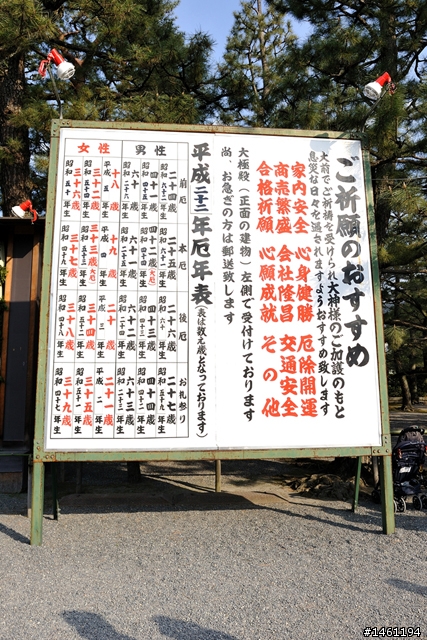 ご祈願のおすすめ
大前でご祈祷を受けられ大神様のご加護のもと
息災な日々を過されますようおすすめ致します
家内安全 心身健勝 厄除開運
商売繁盛 会社隆昌 交通安全
合格祈願 心願成就 その他
大極殿(正面の建物)左側で受付けております
尚、お急ぎの方は郵送致します
平成二十二年厄年表(表は数え歳となっております)
前厄 本厄 後厄 お礼参り
男性
二十四歳 二十五歳 二十六歳 二十七歳
昭和六十二年生 昭和六十一年生 昭和六十年生 昭和五十九年生
四十一歳 四十二歳(大厄) 四十三歳 四十四歳
昭和四十五年生 昭和四十四年生 昭和四十三年生 昭和四十二年生
六十歳 六十一歳 六十二歳 六十三歳
昭和二十六年生 昭和二十五年生 昭和二十四年生 昭和二十三年生
女性
十八歳 十九歳 二十歳 二十一歳
平成五年生 平成四年生 平成三年生 平成二年生
三十二歳 三十三歳(大厄) 三十四歳 三十五歳
昭和五十四年生 昭和五十三年生 昭和五十二年生 昭和五十一年生
三十六歳 三十七歳 三十八歳 三十九歳
昭和五十年生 昭和四十九年生 昭和四十八年生 昭和四十七年生
#1461194